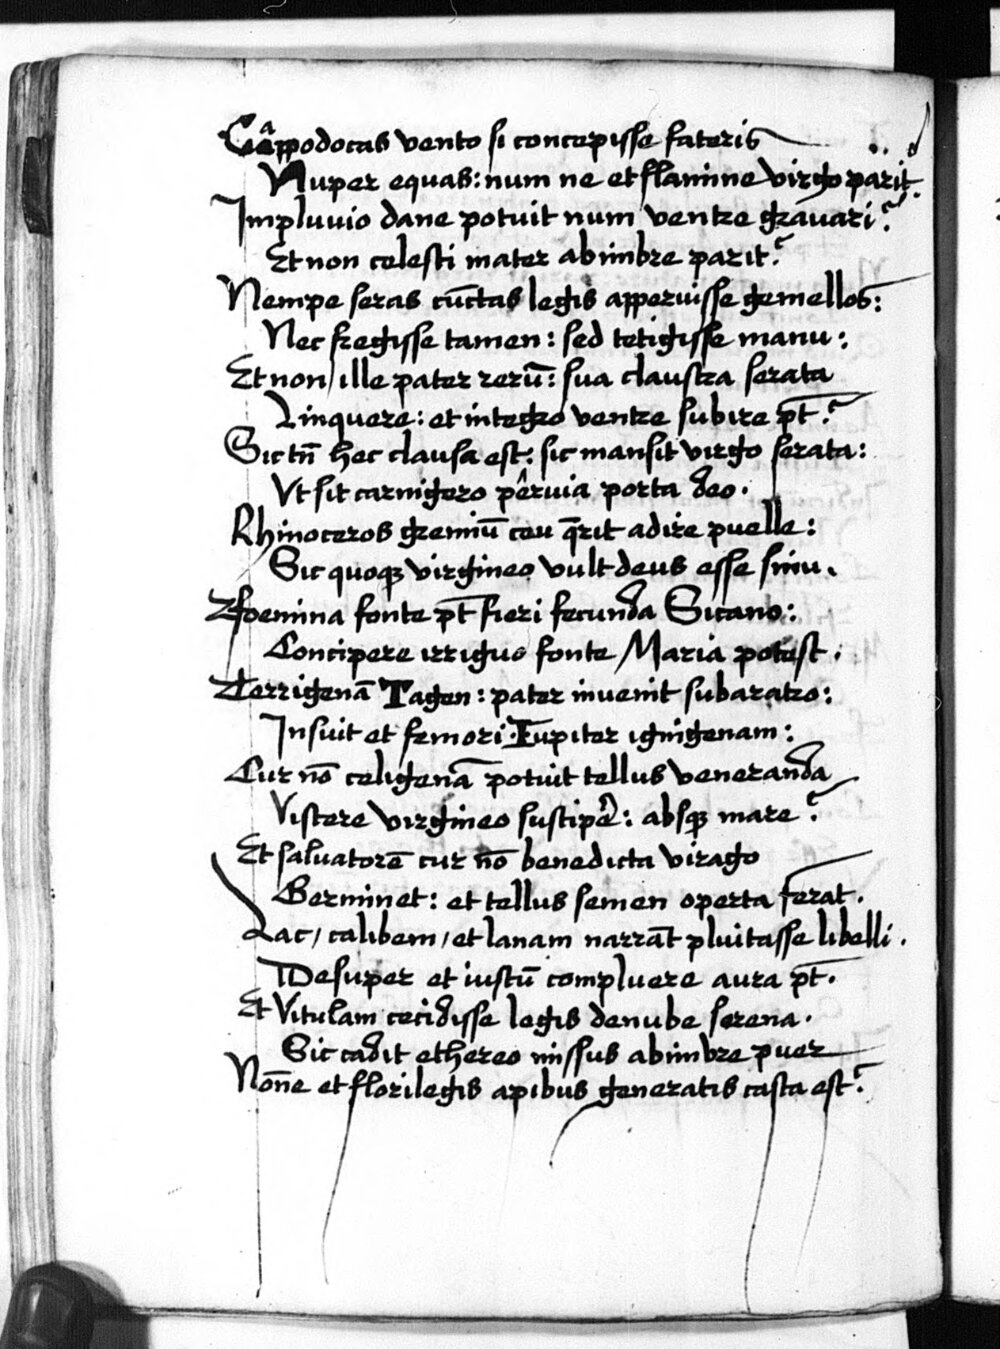 Cappodocas vento si concepisse fateris
Nuper equas: num ne et flamine virgo parit.
Impluvio dane potuit num ventre gravari?
Et non celesti mater ab imbre parit?
Nempe seras cūctas legis apperuisse gemellos:
Nec fregisse tamen: sed tetigisse manu:
Et non / ille pater rerū: sua claustra serata
Linquere: et integro ventre subire pt̄?
Sic tn̄ hec clausa est: sic mansit virgo serata:
Vt sit carnigero pervia porta deo.
Rhinoceros gremiū ceu q̄rit adire puelle:
Sic quoqꝫ virgineo vult deus esse sinu.
foemina fonte pt̄ fieri fecunda Sicano:
Concipere irriguo fonte Maria potest.
Terrigenā Tagen: pater invenit sub aratro:
Insuit et femori Iupiter ignigenam:
Cur nō celigenā potuit tellus veneranda
Viscere virgineo suscipe: absqꝫ mare?
Et salvatorē cur nō benedicta virago
Germinet: et tellus semen operta ferat.
Lac / calibem / et lanam narrāt pluitasse libelli.
Desuper et iustū compluere aura pt̄.
Et Vitulam cecidisse legis de nube serena.
Sic cadit ethereo missus ab imbre puer
Nōne et florilegis apibus generatis casta est?